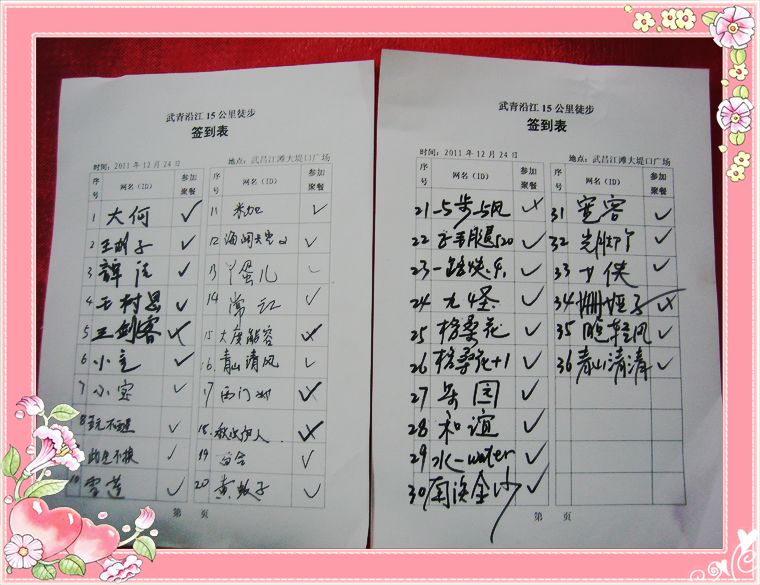 武青沿江15公里徒步
签到表
时间：2011年12月24日 地点：武昌江滩大堤口广场
序号 网名（ID） 参加聚餐 序号 网名（ID） 参加聚餐
1 大何 ✓ 11 米加 ✓
2 王胡子 ✓ 12 ✓
3 ✓ 13 丫蛋儿 ✓
4 ✓ 14 常红 ✓
5 王剑客 15 大度能容
6 小主 ✓ 16 青山清风 ✓
7 小宝 ✓ 17 西门
8 ✓ 18
9 ✓ 19 ✓
10 雪莲 ✓ 20 黄蚊子 ✓
第 页
武青沿江15公里徒步
签到表
时间：2011年12月24日 地点：武昌江滩大堤口广场
序号 网名（ID） 参加聚餐 序号 网名（ID） 参加聚餐
21 一步一风 31 宽容 ✓
22 520 ✓ 32 ✓
23 ✓ 33 侠 ✓
24 九4圣 ✓ 34
25 格桑花 ✓ 35 随轻风 ✓
26 格桑花+1 ✓ 36 青山清清 ✓
27 乐园 ✓
28 和谊 ✓
29 水-water ✓
30 南溪金沙
第 页